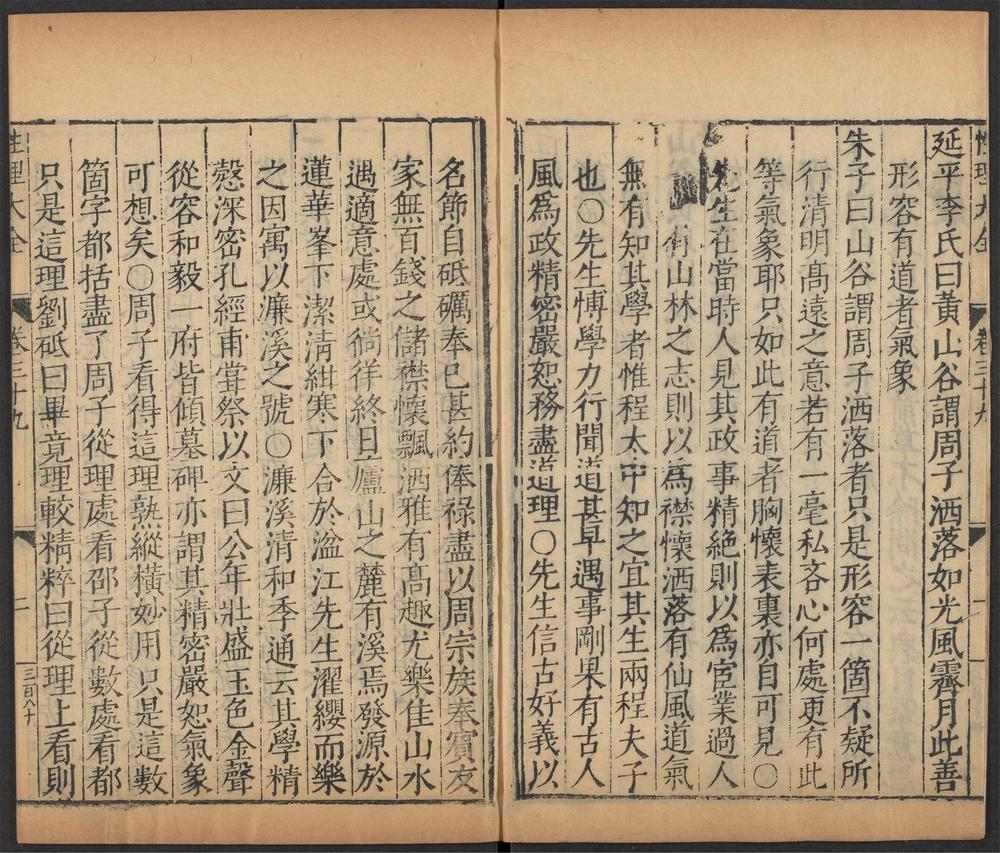 延平李氏曰黃山谷謂周子洒落如光風霽月此善
形容有道者氣象
朱子曰山谷謂周子洒落者只是形容一箇不疑所
行清明高遠之意若有一毫私吝心何處更有此
等氣象耶只如此有道者胸懷表裏亦自可見○
先生在當時人見其政事精絶則以為宦業過人
有山林之志則以為襟懷洒落有仙風道氣
無有知其學者惟程太中知之宜其生兩程夫子
也○先生博學力行聞道甚早遇事剛果有古人
風爲政精密嚴恕務盡道理○先生信古好義以
名節自砥礪奉己甚約俸祿盡以周宗族奉賓友
家無百錢之儲襟懷飄洒雅有高趣尤樂佳山水
遇適意處或徜徉終日廬山之麓有溪焉發源於
蓮華峯下潔清紺寒下合於湓江先生濯纓而樂
之因寓以濂溪之號○濂溪清和季通云其學精
慤深密孔經甫嘗祭以文曰公年壯盛玉色金聲
從容和毅一府皆傾墓碑亦謂其精密嚴恕氣象
可想矣○周子看得這理熟縱橫妙用只是這數
箇字都括盡了周子從理處看邵子從數處看都
只是這理劉砥曰畢竟理較精粹曰從理上看則
性理大全
卷三十九
二
三百八十